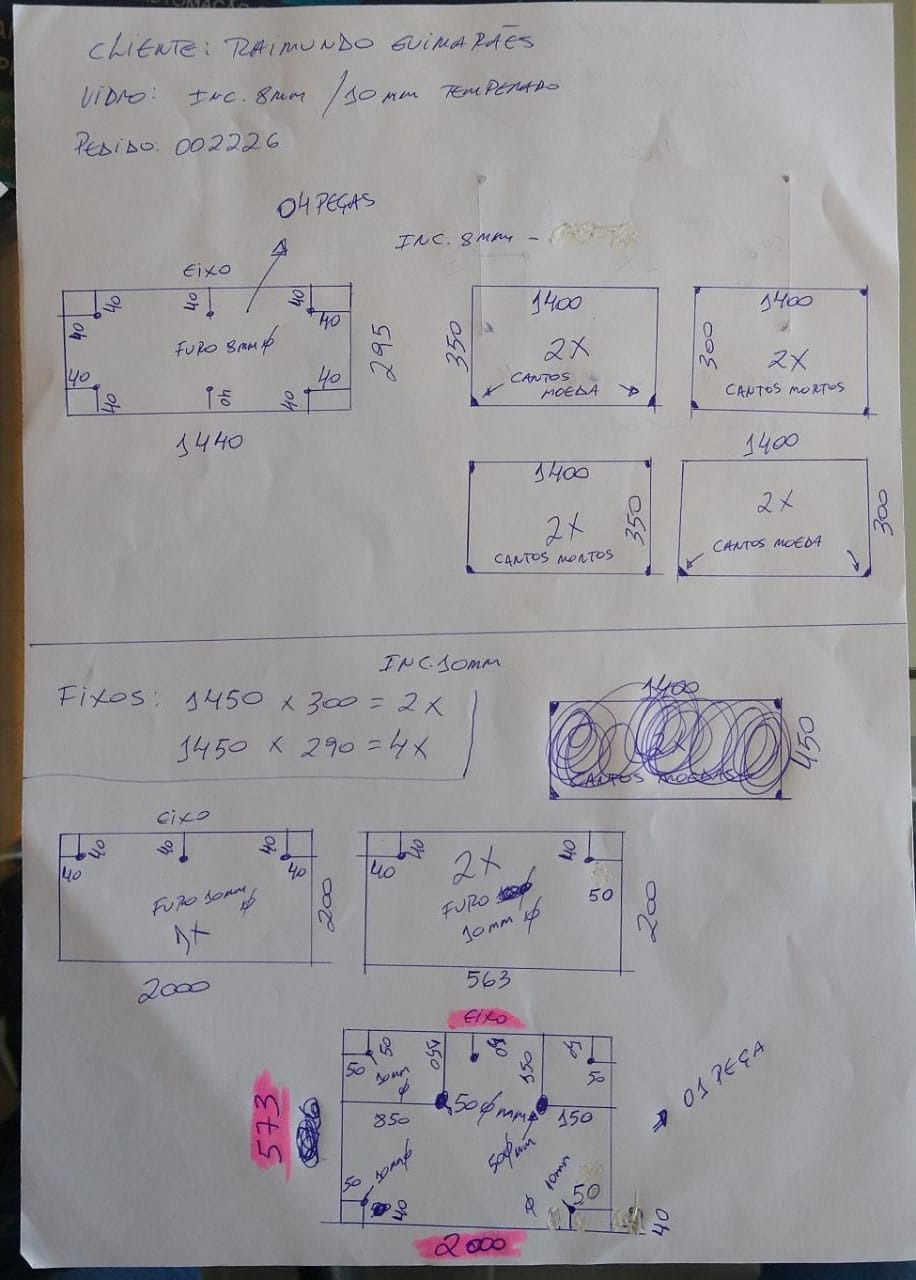 CLIENTE: RAIMUNDO GUIMARÃES
VIDRO: INC. 8mm / 10mm TEMPERADO
PEDIDO: 002226
04 PEÇAS
INC. 8mm -
EIXO
40 40 40 40 40
FURO 8mm φ
40 40 40 40 40
295
1440
1400
350
2X
CANTOS
MOEDA
1400
300
2X
CANTOS MORTOS
1400
350
2X
CANTOS MORTOS
1400
2X
300
CANTOS MOEDA
INC. 10mm
FIXOS: 1450 x 300 = 2x
1450 x 290 = 4x
1400
450
CANTOS MOEDAS
EIXO
40 40 40 40 40
FURO 10mm φ
1X
200
2000
40 40 40
2X
50
FURO
10mm φ
200
563
EIXO
50 50 150 50 150 50 50
10mm φ
50 φ mm
850
150
50 φ mm
573
01 PEÇA
50 10mm φ
40
φ 10mm
50
40
2000